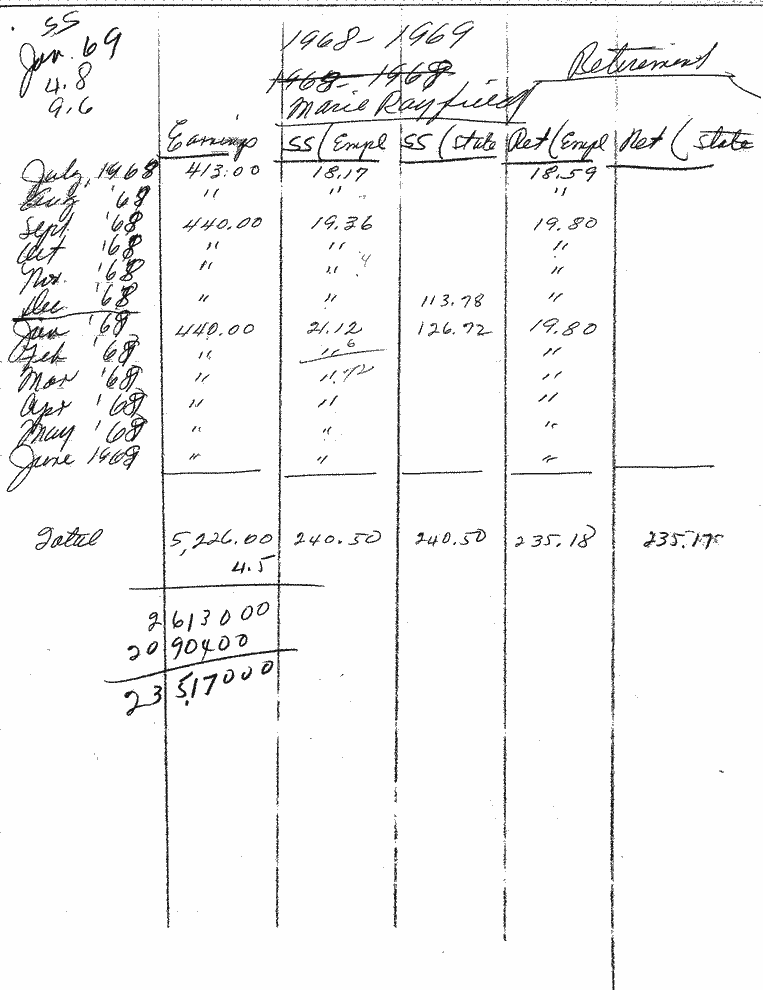 SS
Jan. 69
4.8
9.6
1968-1969
1968-1968
Marie Rayfield
Retirement
Earnings SS (Empl SS (State Ret (Empl Ret (State
July, 1968 413.00 18.17 18.59
Aug '68 " " "
Sept '68 440.00 19.36 19.80
Oct '68 " " "
Nov. '68 " " 4 "
Dec '68 " " 113.78 "
Jan '69 440.00 21.12 126.72 19.80
Feb '69 " " 6 "
Mar '69 " " .72 "
Apr '69 " " "
May '69 " " "
June 1969 " " "
Total 5,226.00 240.50 240.50 235.18 235.17
4.5
2613000
2090400
23517000